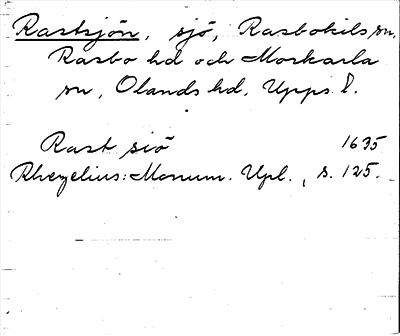 Rastsjön, sjö, Rasbokils sn,
Rasbo hd och Morkarla
sn, Olands hd, Upps. l.
Rast siö 1635
Rhezelius: Monum. Upl., s. 125.